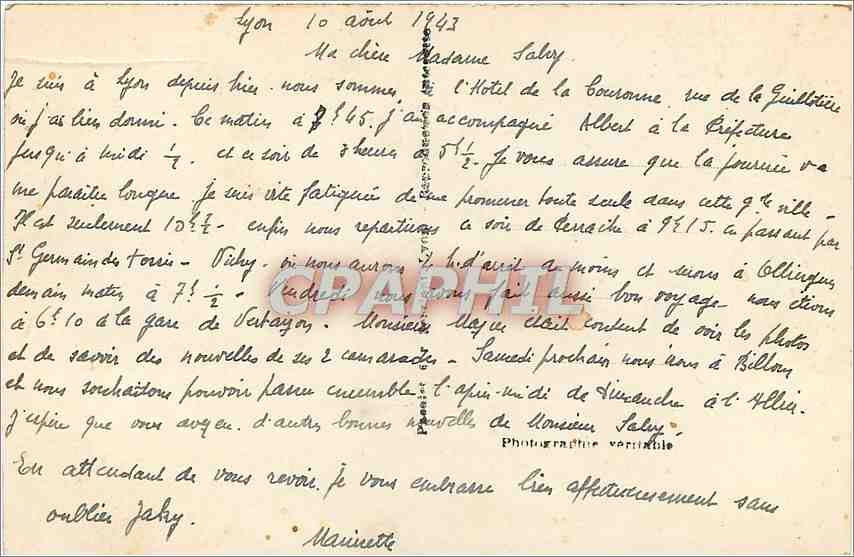 Lyon 10 août 1943
Ma chère Madame Salvy.
Je suis à Lyon depuis hier. nous sommes à l'Hotel de la Couronne, rue de la Guillotière
où j'ai bien dormi. Ce matin à 7h45. j'ai accompagné Albert à la Préfecture
jusqu'à midi ½. et ce soir de 3 heures à 5h½. Je vous assure que la journée va
me paraître longue. je suis vite fatiguée de me promener toute seule dans cette gde ville.
Il est seulement 10h½ - enfin nous repartirons ce soir de Perrache à 9h15. en passant par
St Germain des Fossés - Vichy. où nous aurons h d'arrêt au moins et serons à
demain matin à 7h ½ - Vendredi nous avons fait aussi bon voyage nous étions
à 6h10 à la gare de Vertaizon. Monsieur était content de voir les photos
et de savoir des nouvelles de ses 2 camarades - Samedi prochain nous irons à Billom
et nous souhaitons pouvoir passer ensemble l'après-midi de dimanche à l'Allier.
J'espère que vous avez d'autres bonnes nouvelles de Monsieur Salvy.
Photographie véritable
En attendant de vous revoir, je vous embrasse bien affectueusement sans
oublier
Marinette
CPARPHIL